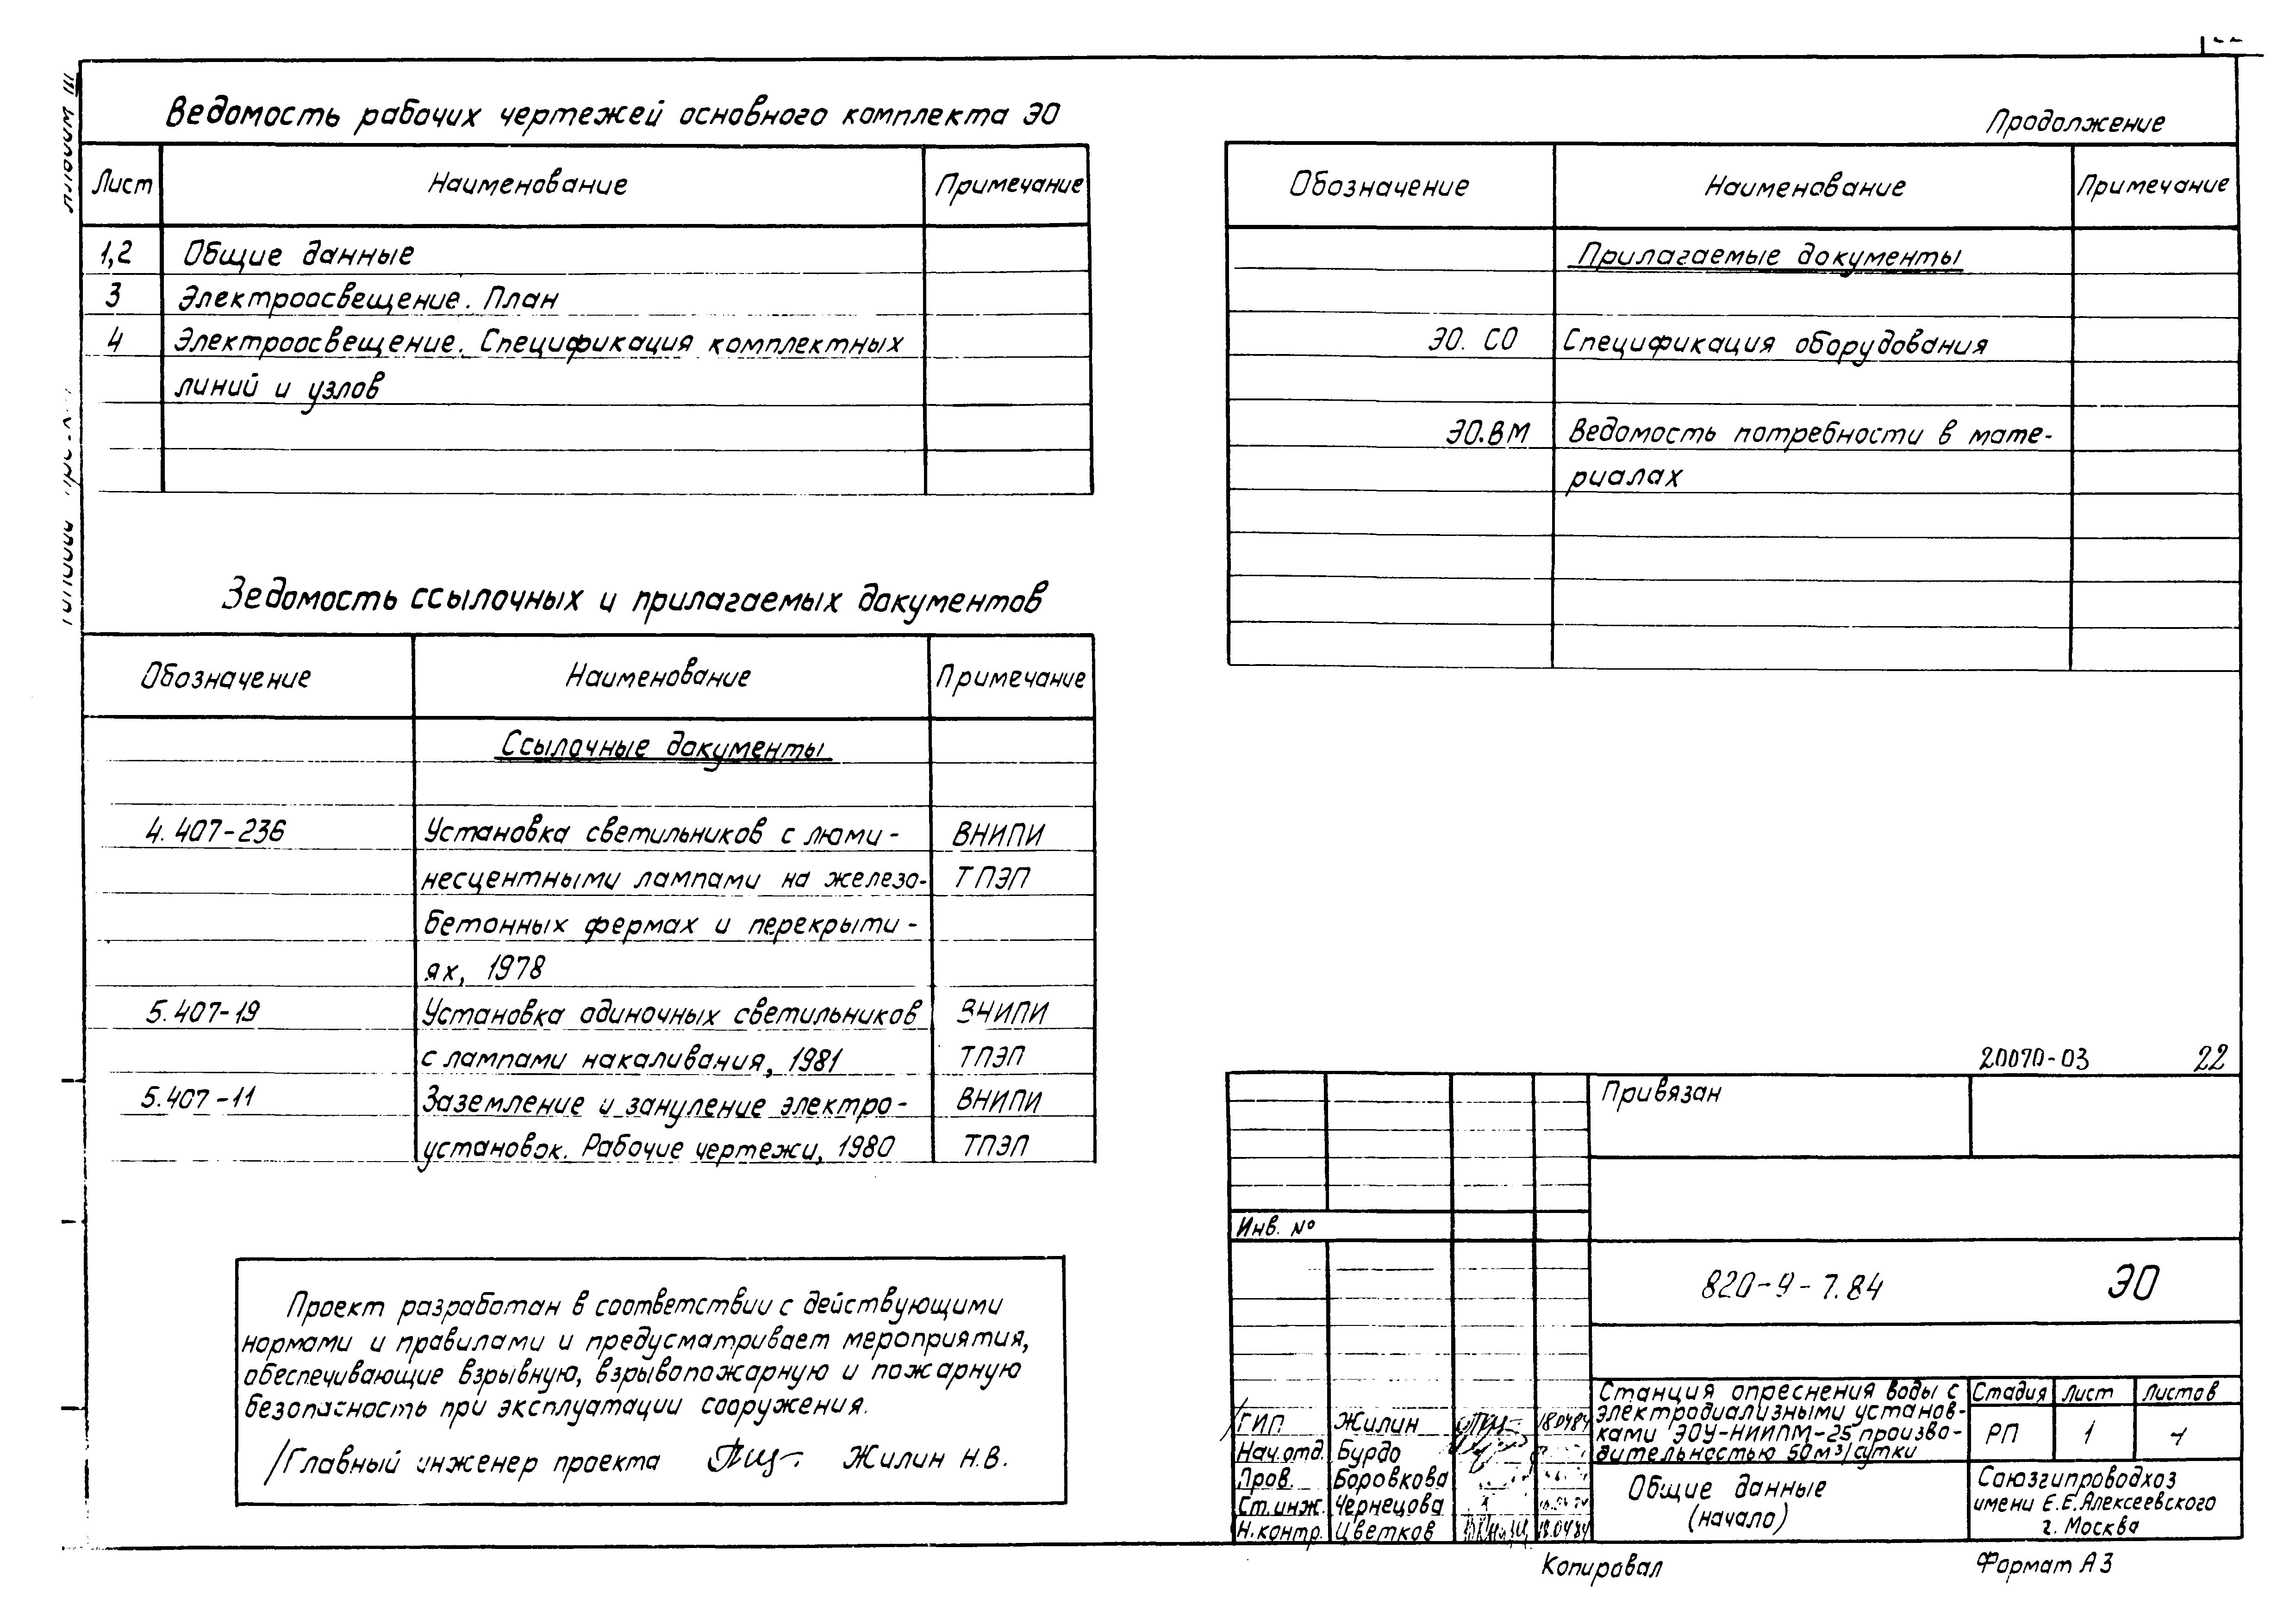 Ведомость рабочих чертежей основного комплекта ЭО
Лист Наименование Примечание
1,2 Общие данные
3 Электроосвещение. План
4 Электроосвещение. Спецификация комплектных
линий и узлов
Ведомость ссылочных и прилагаемых документов
Обозначение Наименование Примечание
Ссылочные документы
4.407-236 Установка светильников с люми- ВНИПИ
несцентными лампами на железо- ТПЭП
бетонных фермах и перекрыти-
ях, 1978
5.407-19 Установка одиночных светильников ВНИПИ
с лампами накаливания, 1981 ТПЭП
5.407-11 Заземление и зануление электро- ВНИПИ
установок. Рабочие чертежи, 1980 ТПЭП
Проект разработан в соответствии с действующими
нормами и правилами и предусматривает мероприятия,
обеспечивающие взрывную, взрывопожарную и пожарную
безопасность при эксплуатации сооружения.
/Главный инженер проекта Жилин Н.В.
Продолжение
Обозначение Наименование Примечание
Прилагаемые документы
ЭО. СО Спецификация оборудования
ЭО.ВМ Ведомость потребности в мате-
риалах
20070-03 22
Привязан
Инв. №
820-9-7.84 ЭО
ГИП Жилин 18.04.84
Нач.отд. Бурдо
Пров. Боровкова
Ст.инж. Чернецова
Н.контр. Цветков 18.04.84
Станция опреснения воды с
электродиализными установ-
ками ЭОУ-НИИПМ-25 произво-
дительностью 50м³/сутки
Стадия Лист Листов
РП 1 4
Общие данные
(начало)
Союзгипроводхоз
имени Е.Е.Алексеевского
г. Москва
Копировал Формат А3